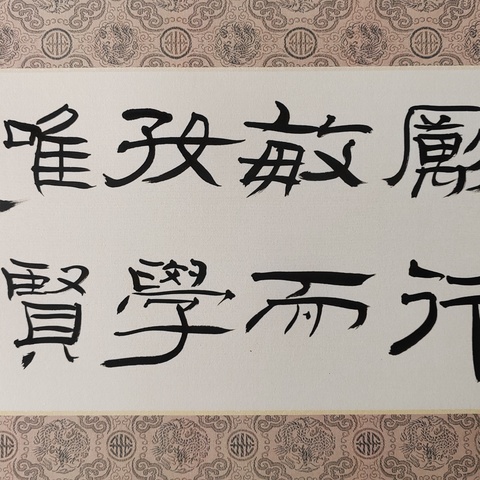 勵行
敏而
孜學
唯賢